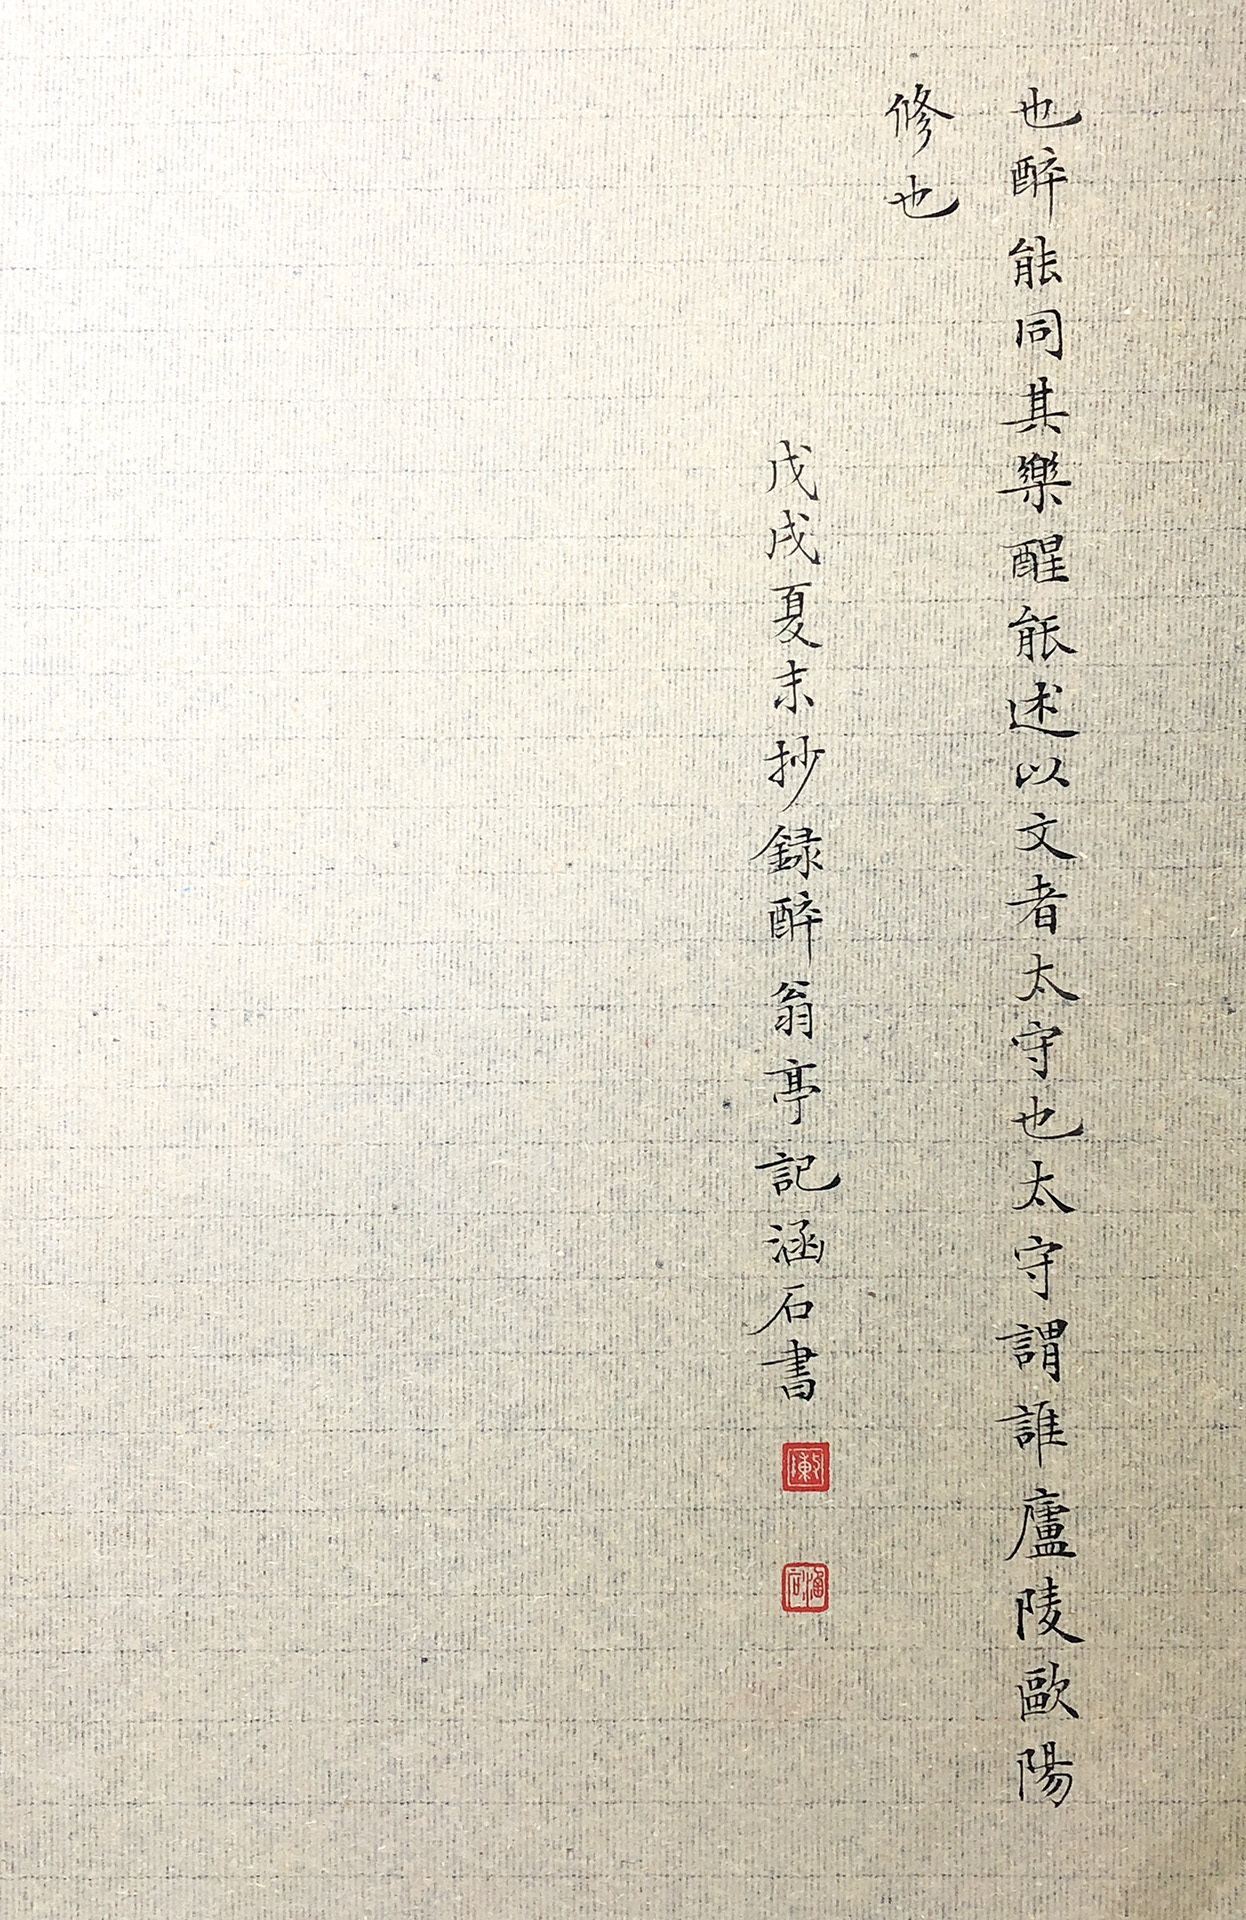 也醉能同其樂醒能述以文者太守也太守謂誰廬陵歐陽
修也
戊戌夏末抄錄醉翁亭記涵石書